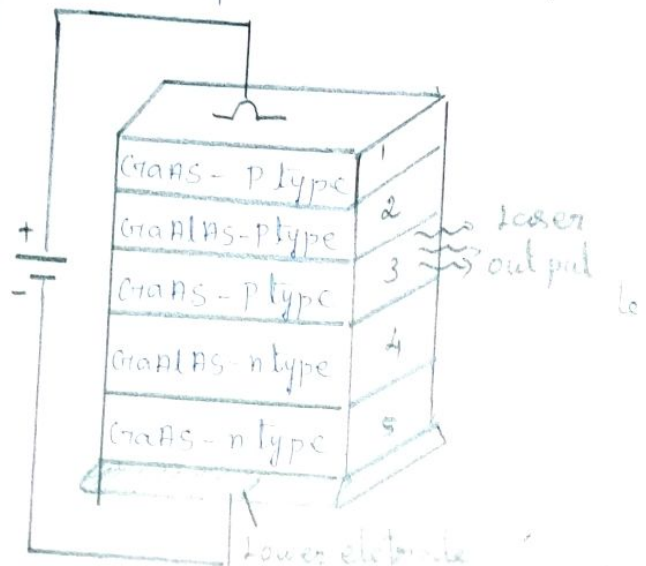 +
-
GaAs - P type
GaAlAs - P type
GaAs - P type
GaAlAs - n type
GaAs - n type
1
2
3
4
5
Laser
output
le
Lower